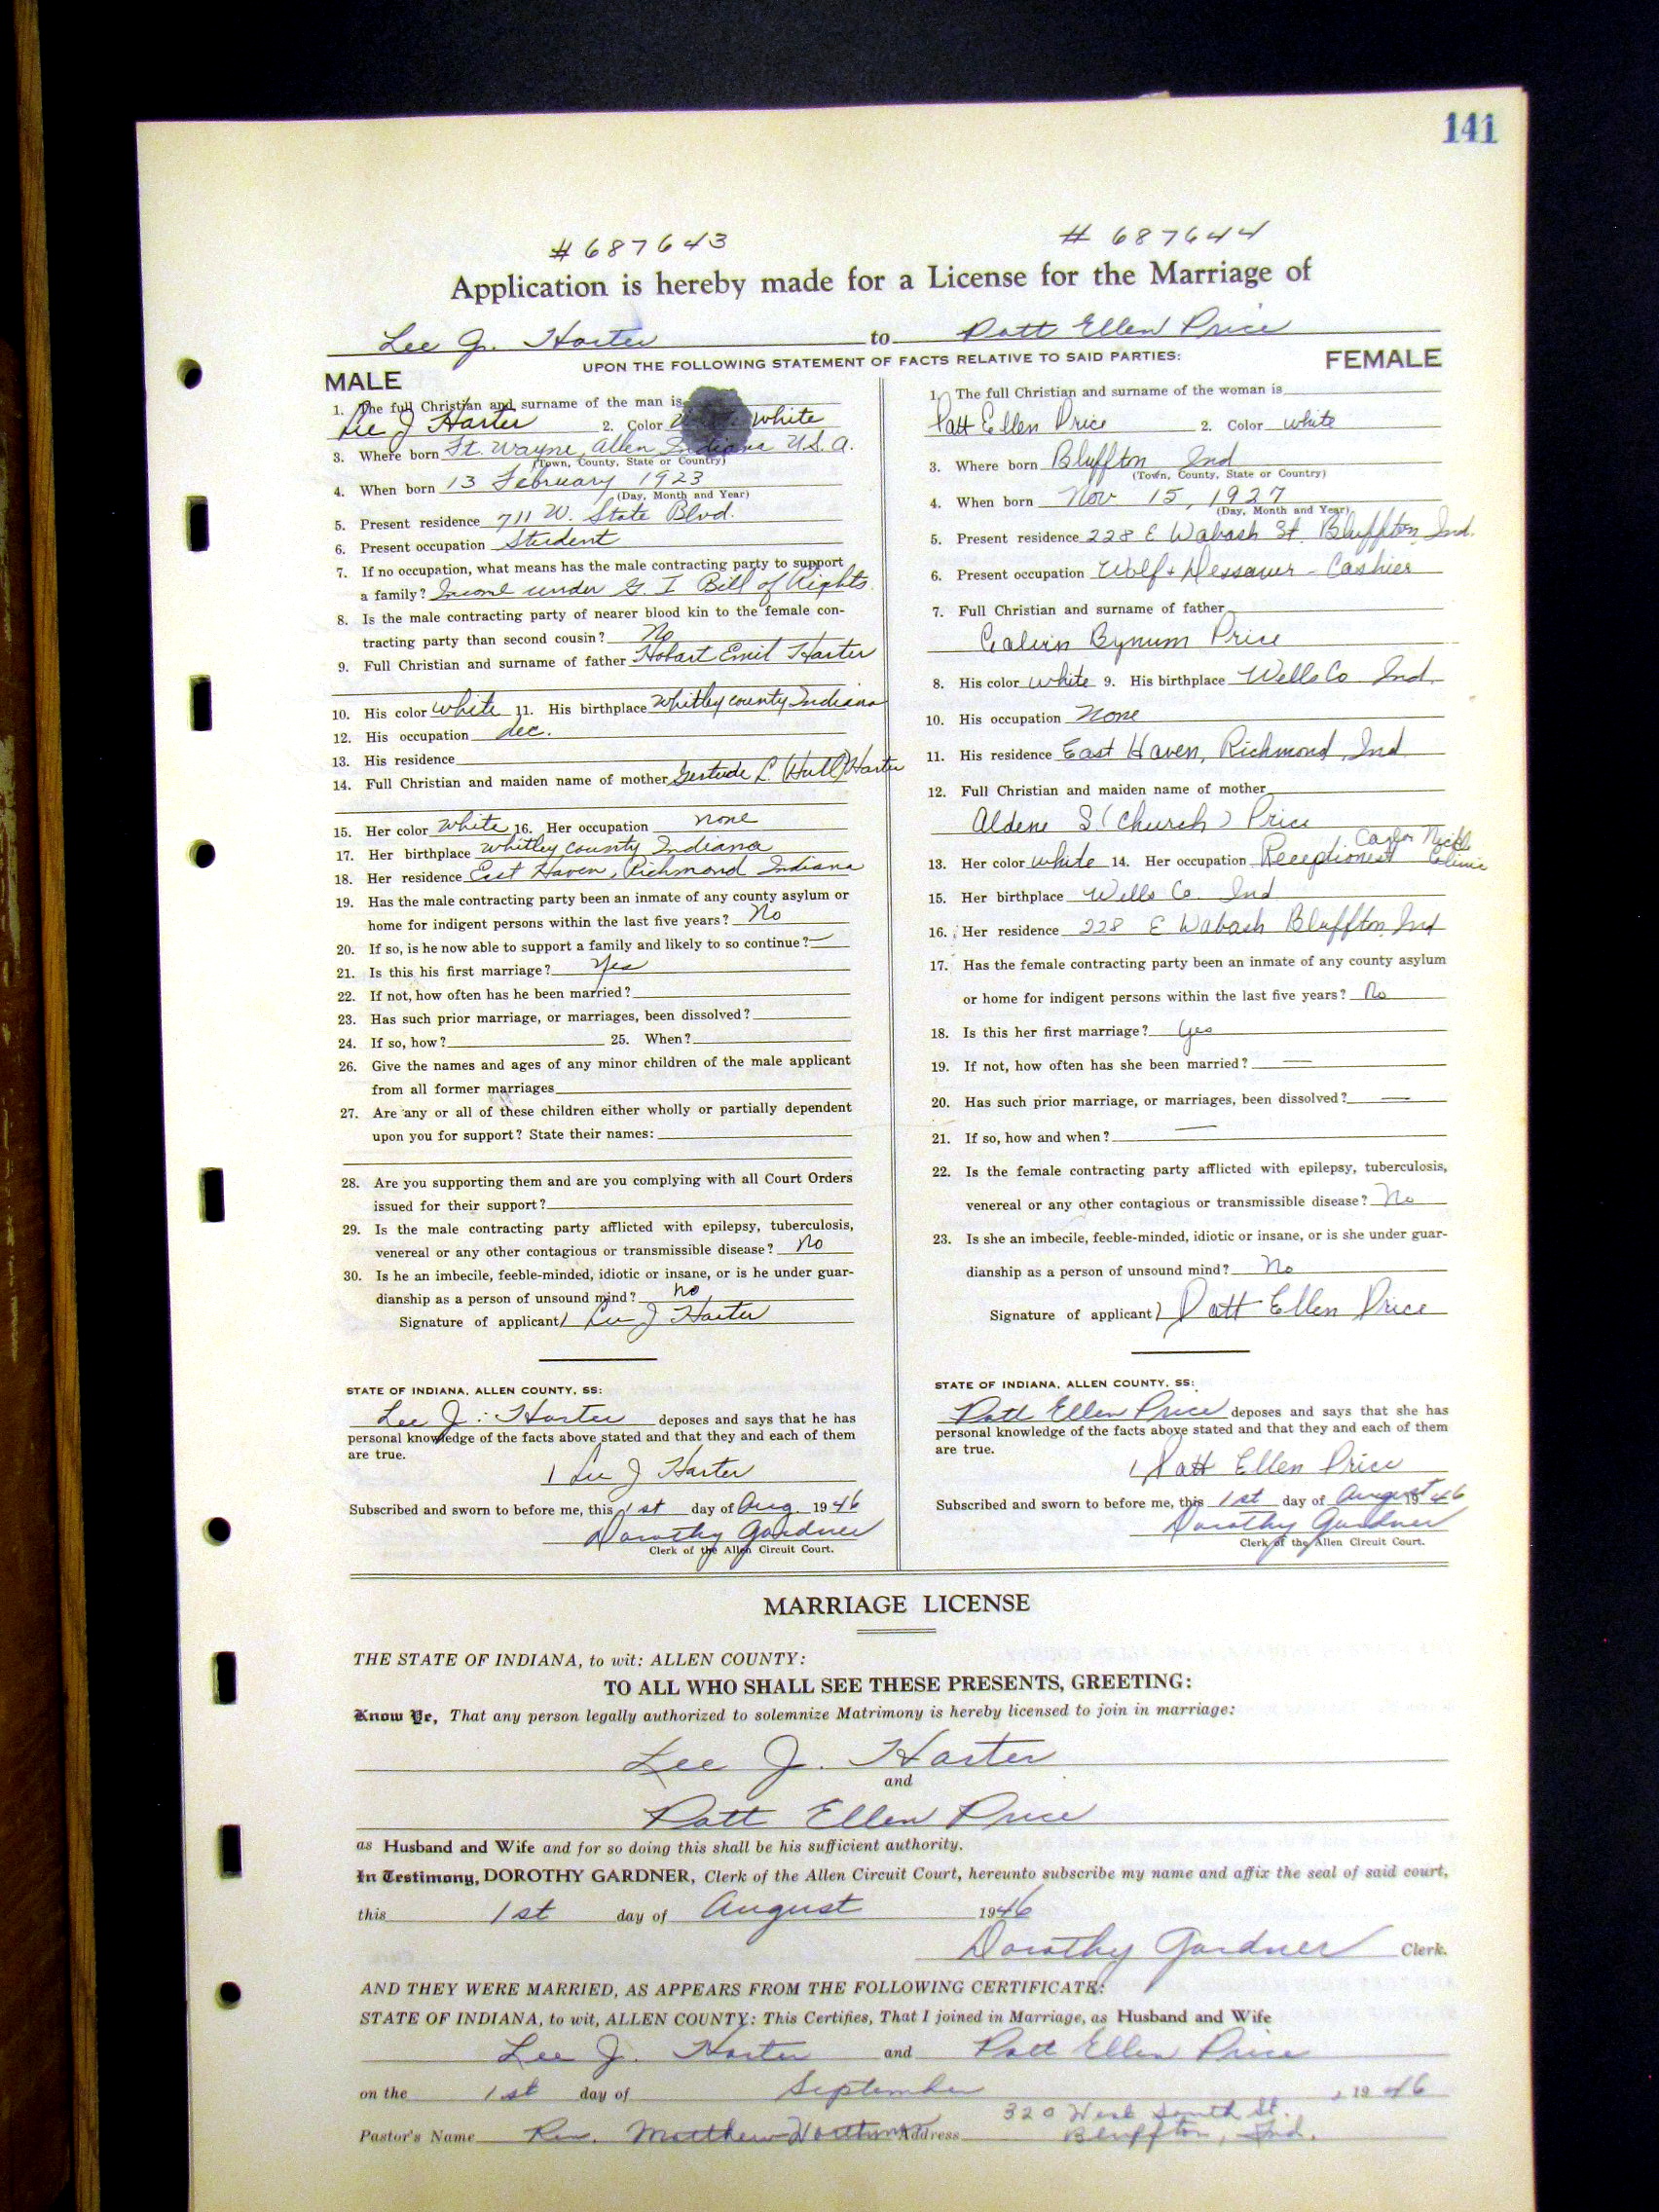 141
# 687643 # 687644
Application is hereby made for a License for the Marriage of
Lee J. Harter to Patt Ellen Price
UPON THE FOLLOWING STATEMENT OF FACTS RELATIVE TO SAID PARTIES:
MALE
1. The full Christian and surname of the man is
Lee J Harter 2. Color White
3. Where born Ft. Wayne, Allen Indiana U.S.A.
(Town, County, State or Country)
4. When born 13 February 1923
(Day, Month and Year)
5. Present residence 711 W. State Blvd.
6. Present occupation Student
7. If no occupation, what means has the male contracting party to support
a family? Income under G. I Bill of Rights.
8. Is the male contracting party of nearer blood kin to the female con-
tracting party than second cousin? No
9. Full Christian and surname of father Hobart Emil Harter
10. His color White 11. His birthplace Whitley county Indiana
12. His occupation dec.
13. His residence
14. Full Christian and maiden name of mother Gertrude L. (Hull) Harter
15. Her color White 16. Her occupation none
17. Her birthplace Whitley County Indiana
18. Her residence East Haven, Richmond Indiana
19. Has the male contracting party been an inmate of any county asylum or
home for indigent persons within the last five years? No
20. If so, is he now able to support a family and likely to so continue? —
21. Is this his first marriage? Yes
22. If not, how often has he been married?
23. Has such prior marriage, or marriages, been dissolved?
24. If so, how? 25. When?
26. Give the names and ages of any minor children of the male applicant
from all former marriages
27. Are any or all of these children either wholly or partially dependent
upon you for support? State their names:
28. Are you supporting them and are you complying with all Court Orders
issued for their support?
29. Is the male contracting party afflicted with epilepsy, tuberculosis,
venereal or any other contagious or transmissible disease? No
30. Is he an imbecile, feeble-minded, idiotic or insane, or is he under guar-
dianship as a person of unsound mind? no
Signature of applicant Lee J Harter
STATE OF INDIANA, ALLEN COUNTY, SS:
Lee J. Harter deposes and says that he has
personal knowledge of the facts above stated and that they and each of them
are true.
Lee J Harter
Subscribed and sworn to before me, this 1st day of Aug. 1946
Dorothy Gardner
Clerk of the Allen Circuit Court.
FEMALE
1. The full Christian and surname of the woman is
Patt Ellen Price 2. Color white
3. Where born Bluffton Ind
(Town, County, State or Country)
4. When born Nov 15, 1927
(Day, Month and Year)
5. Present residence 228 E Wabash St. Bluffton, Ind.
6. Present occupation Wolf & Dessauer - Cashier
7. Full Christian and surname of father
Calvin Bynum Price
8. His color white 9. His birthplace Wells Co Ind.
10. His occupation None
11. His residence East Haven, Richmond, Ind
12. Full Christian and maiden name of mother
Aldene S. (Church) Price
13. Her color white 14. Her occupation Receptionist Clinic
15. Her birthplace Wells Co. Ind
16. Her residence 228 E Wabash Bluffton, Ind
17. Has the female contracting party been an inmate of any county asylum
or home for indigent persons within the last five years? No
18. Is this her first marriage? Yes
19. If not, how often has she been married? —
20. Has such prior marriage, or marriages, been dissolved? —
21. If so, how and when? —
22. Is the female contracting party afflicted with epilepsy, tuberculosis,
venereal or any other contagious or transmissible disease? No
23. Is she an imbecile, feeble-minded, idiotic or insane, or is she under guar-
dianship as a person of unsound mind? No
Signature of applicant Patt Ellen Price
STATE OF INDIANA, ALLEN COUNTY, SS:
Patt Ellen Price deposes and says that she has
personal knowledge of the facts above stated and that they and each of them
are true.
Patt Ellen Price
Subscribed and sworn to before me, this 1st day of August 1946
Dorothy Gardner
Clerk of the Allen Circuit Court.
MARRIAGE LICENSE
THE STATE OF INDIANA, to wit: ALLEN COUNTY:
TO ALL WHO SHALL SEE THESE PRESENTS, GREETING:
Know Ye, That any person legally authorized to solemnize Matrimony is hereby licensed to join in marriage:
Lee J. Harter
and
Patt Ellen Price
as Husband and Wife and for so doing this shall be his sufficient authority.
In Testimony, DOROTHY GARDNER, Clerk of the Allen Circuit Court, hereunto subscribe my name and affix the seal of said court,
this 1st day of August 1946
Dorothy Gardner Clerk.
AND THEY WERE MARRIED, AS APPEARS FROM THE FOLLOWING CERTIFICATE:
STATE OF INDIANA, to wit, ALLEN COUNTY: This Certifies, That I joined in Marriage, as Husband and Wife
Lee J. Harter and Patt Ellen Price
on the 1st day of September, 1946
Pastor's Name Rev. Matthew Address 320 West South St.
Bluffton, Ind.